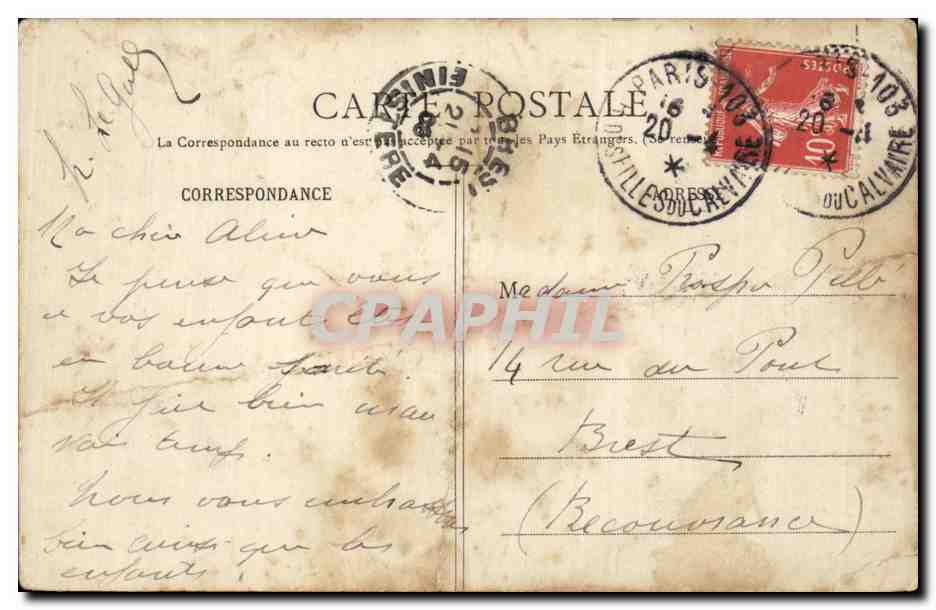 h. Le Gall
CARTE POSTALE
La Correspondance au recto n'est pas acceptée par tous les Pays Étrangers. (Se rense
CORRESPONDANCE
ADRESSE
Ma cher Aline
Je pense que vous
et vos enfants êtes
en bonne santé.
Il fait bien
mauvais temps.
Nous vous embrassons
bien ainsi que les
enfants.
Madame Prosper
14 rue du Pont
Brest
(Recouvrance)
PARIS 103
20 - 4
FILLES DU CALVAIRE
PARIS 103
20 - 4
DU CALVAIRE
BREST
FINISTERE
POSTES
10
CPAPHIL